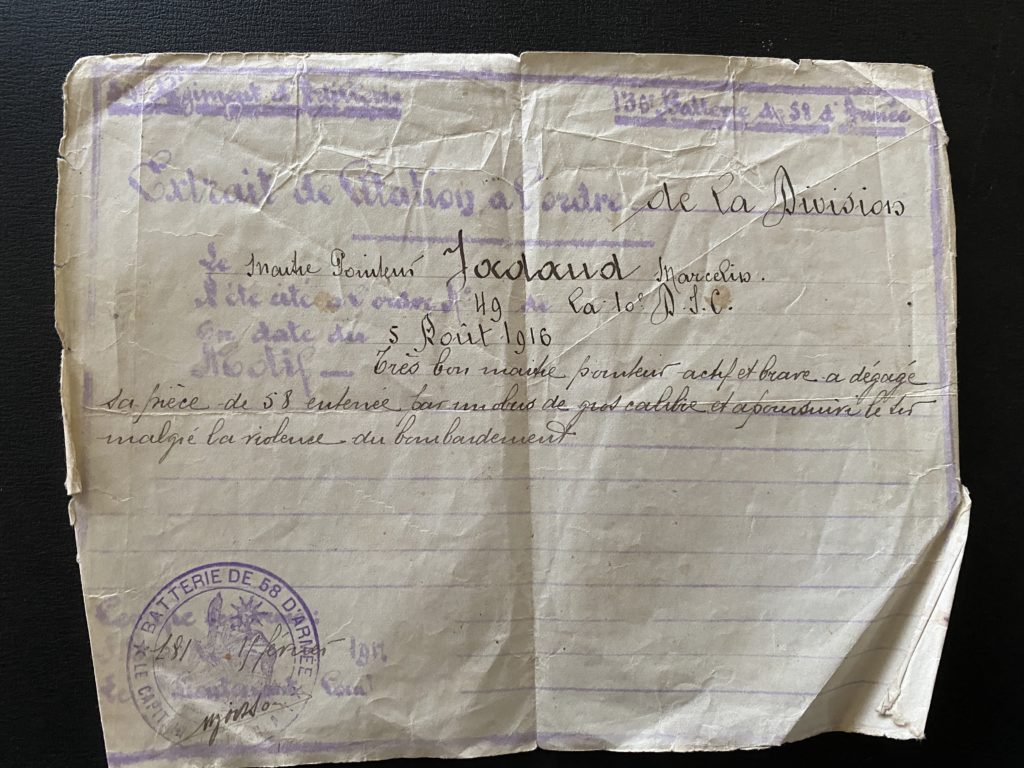 Régiment d'Artillerie
130e Batterie de 58 d'Armée
Extrait de Citation a l'ordre de la Division
Le Maitre Pointeur Jadaud Marcelin.
A été cité a l'ordre N° 49 de la 10e D.I.C.
En date du 5 Août 1916
Motif — Très bon maitre pointeur actif et brave a dégagé
sa pièce de 58 enterrée par un obus de gros calibre et a poursuivi le tir
malgré la violence du bombardement
BATTERIE DE 58 D'ARMÉE
LE CAPIT
février 191
Lieutenant